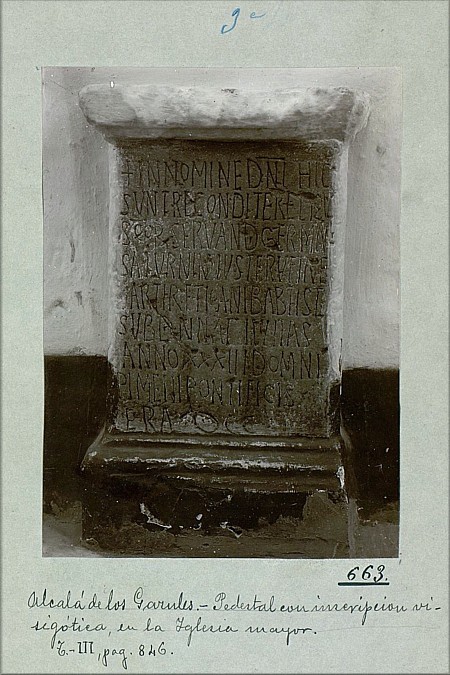 3ª
+ YN NOMINE DNI HIC
SUNT RECONDITE RELIQU
SCOR SERVAND GERMA
SATURNIN IUSTE RUFINE
MART
ANNO XXXIII DOMNI
PIMENI PONTIFICIS
ERA DCC
663.
Alcalá de los Gazules. – Pedestal con inscripcion vi-
sigótica, en la Iglesia mayor.
T.-III, pag. 846.